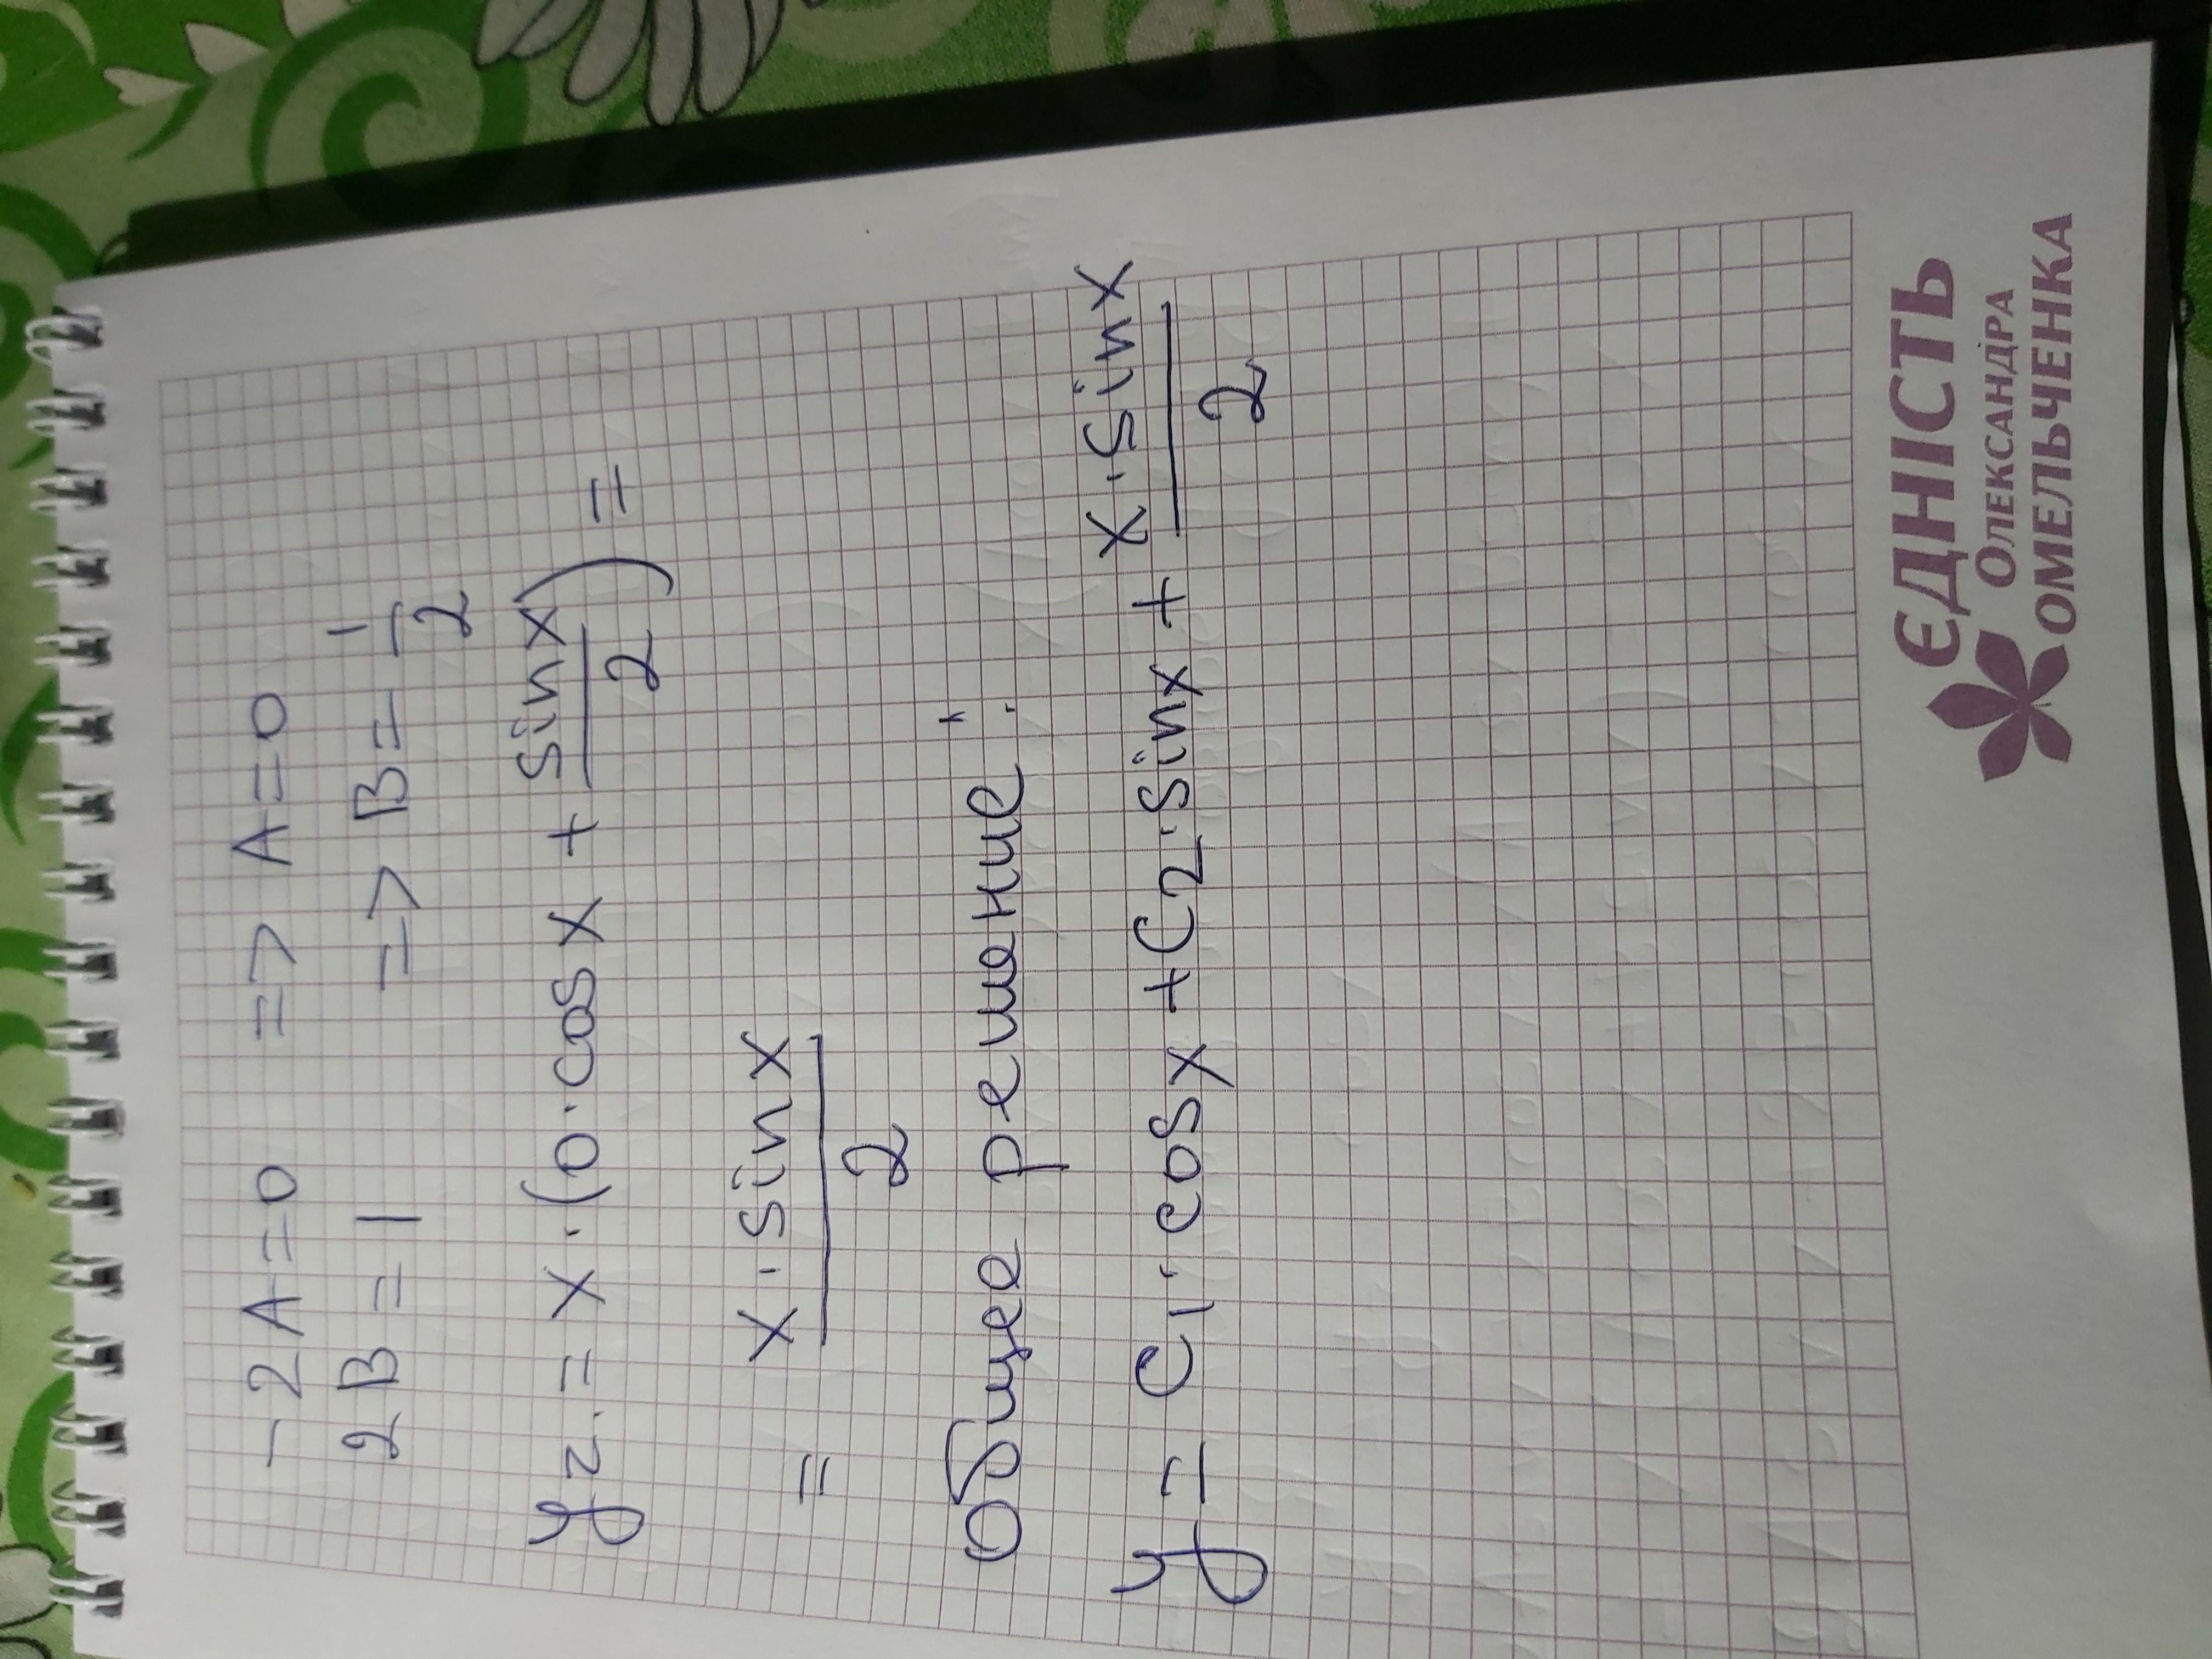 -2A=0 => A=0
2B=1 => B=1/2
y2.=x·(0·cosx+sinx/2)=
=x·sinx/2
Общее решение:
y=C1·cosx+C2·sinx+x·sinx/2
ЄДНІСТЬ
ОЛЕКСАНДРА
ОМЕЛЬЧЕНКА